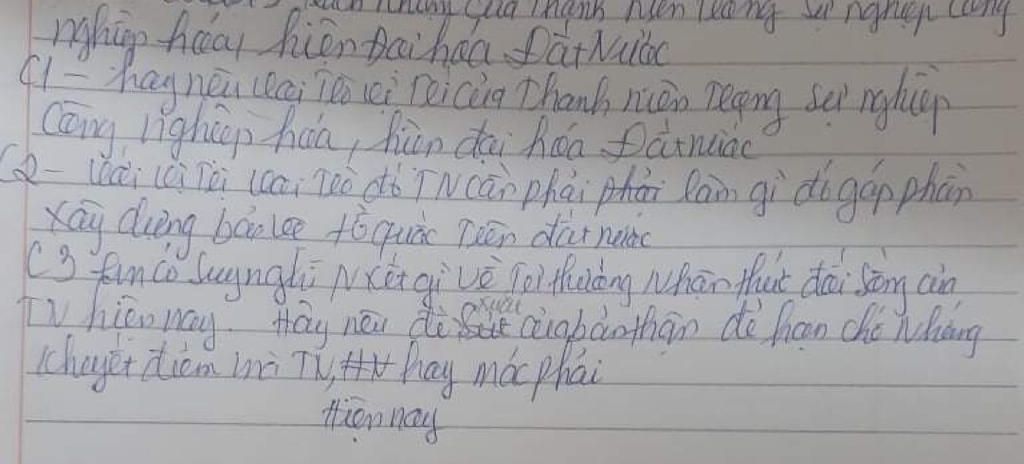 nhiệm của Thanh niên trong sự nghiệp công
nghiệp hóa, hiện Đại hóa Đất Nước
C1 - hãy nêu vai trò vị trí của Thanh niên trong sự nghiệp
công nghiệp hóa, hiện đại hóa Đất nước
C2 - Với vị trí vai trò đó TN cần phải phải làm gì để góp phần
xây dựng bảo vệ tổ quốc trên đất nước
C3 Em có suy nghĩ N xét gì về nhận thức đời sống của
TN hiện nay. Hãy nêu đề xuất của bản thân để hạn chế những
khuyết điểm mà TN, HN hay mắc phải
Hiện nay